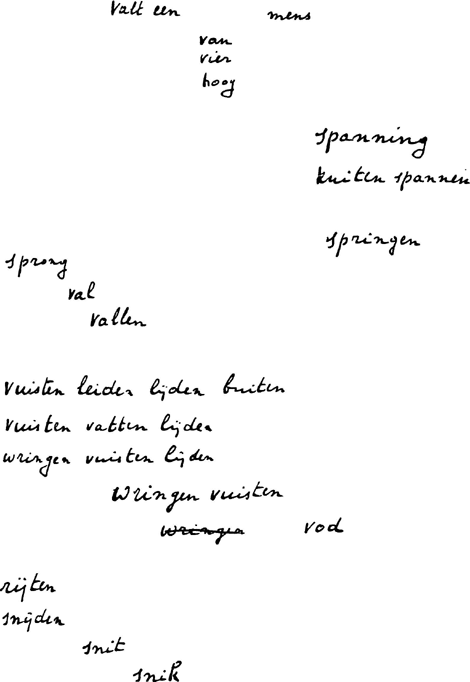 Valt een mens
van
vier
hoog
spanning
kuiten spannen
springen
sprong
val
vallen
vuisten leiden lijden buiten
vuisten vatten lijden
wringen vuisten lijden
Wringen vuisten
wringen vod
rijten
snijden
snit
snik